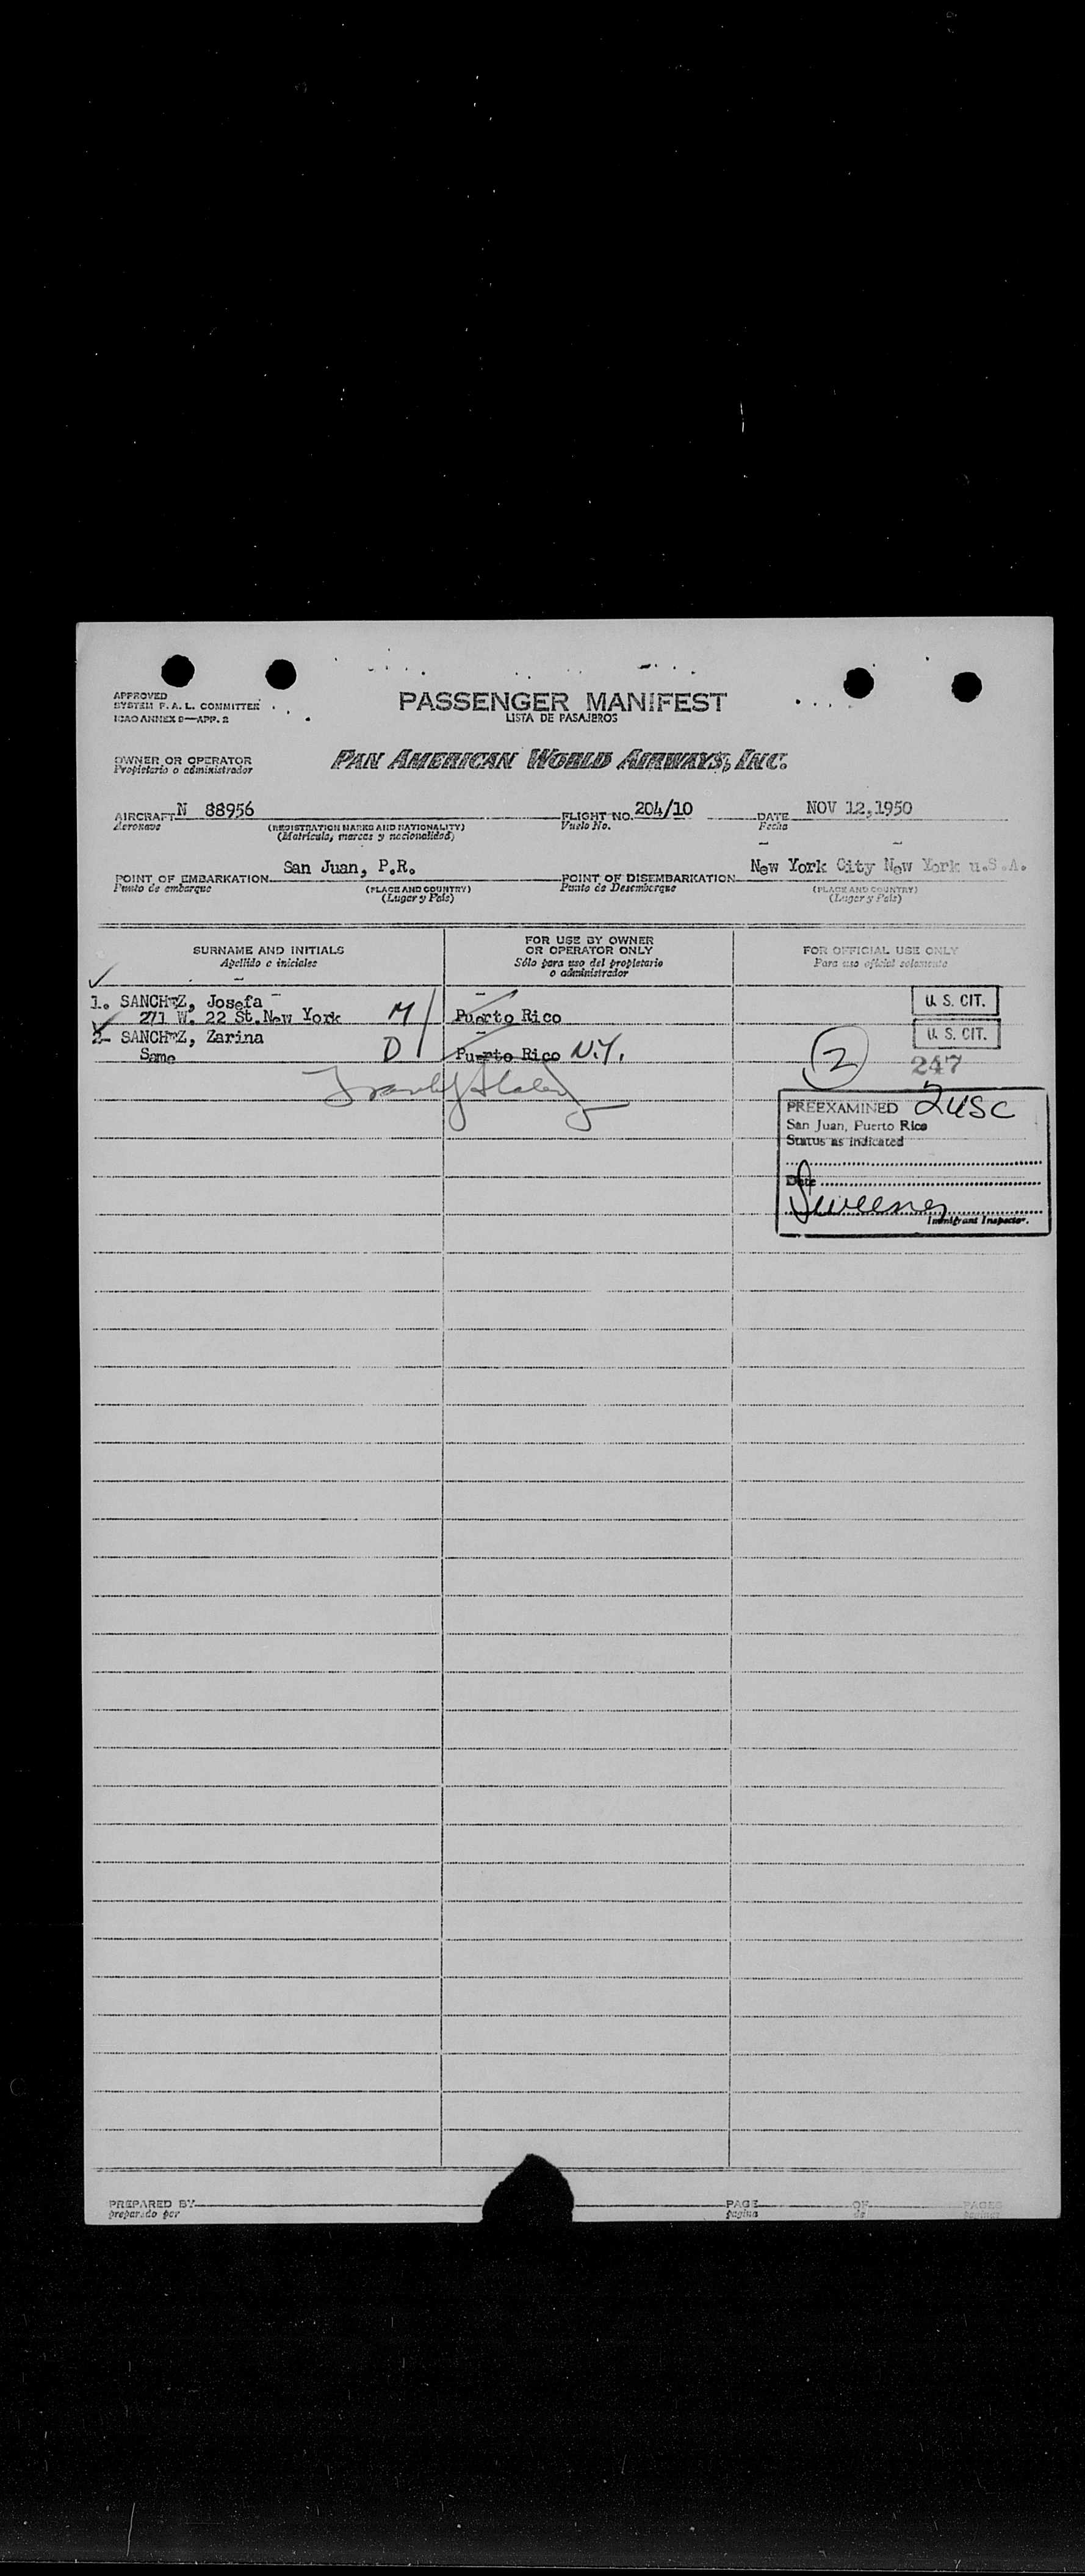 APPROVED
SYSTEM F. A. L. COMMITTEE
ICAO ANNEX 9—APP. 2
PASSENGER MANIFEST
LISTA DE PASAJEROS
OWNER OR OPERATOR
Propietario o administrador
PAN AMERICAN WORLD AIRWAYS, INC.
AIRCRAFT N 88956 FLIGHT NO. 204/10 DATE NOV 12, 1950
Aeronave (REGISTRATION MARKS AND NATIONALITY) Vuelo No. Fecha
(Matricula, marcas y nacionalidad)
POINT OF EMBARKATION San Juan, P.R. POINT OF DISEMBARKATION New York City New York u.S.A.
Punto de embarque (PLACE AND COUNTRY) Punto de Desembarque (PLACE AND COUNTRY)
(Lugar y País) (Lugar y País)
SURNAME AND INITIALS
Apellido e iniciales
FOR USE BY OWNER
OR OPERATOR ONLY
Sólo para uso del propietario
o administrador
FOR OFFICIAL USE ONLY
Para uso oficial solamente
1. SANCHEZ, Josefa U. S. CIT.
271 W. 22 St. New York M Puerto Rico
2- SANCHEZ, Zarina U. S. CIT.
Same D Puerto Rico N.Y. 2 247
PREEXAMINED 2 USC
San Juan, Puerto Rico
Status as indicated
Date
Sweeney
Immigrant Inspector.
PREPARED BY PAGE OF PAGES
preparado por pagina de paginas